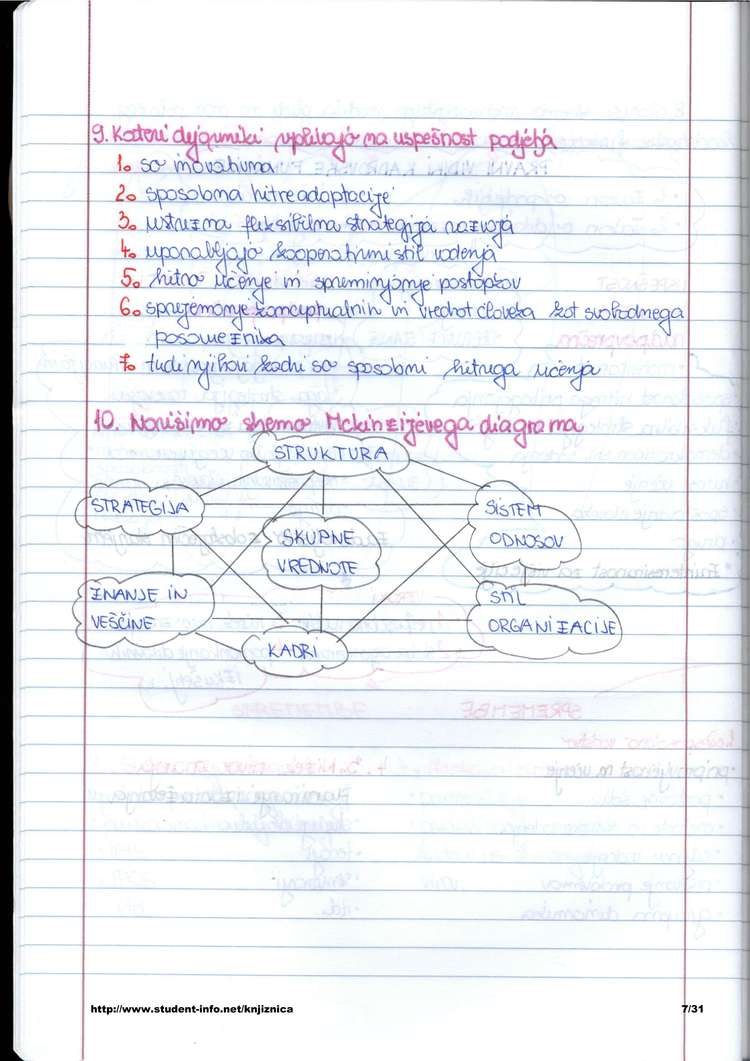 9. Kateri dejavniki vplivajo na uspešnost podjetja
1. so inovativna
2. sposobna hitre adaptacije
3. ustrezna fleksibilna strategija razvoja
4. uporabljajo kooperativni stil vodenja
5. hitro učenje in spreminjanje postopkov
6. sprejemanje konceptualnih in vrednot človeka kot svobodnega
posameznika
7. tudi njihovi kadri so sposobni hitrega učenja
10. Narišimo shemo Mckinzijevega diagrama
STRUKTURA
STRATEGIJA
SISTEM
ODNOSOV
SKUPNE
VREDNOTE
ZNANJE IN
VEŠČINE
STIL
ORGANIZACIJE
KADRI
http://www.student-info.net/knjiznica
7/31